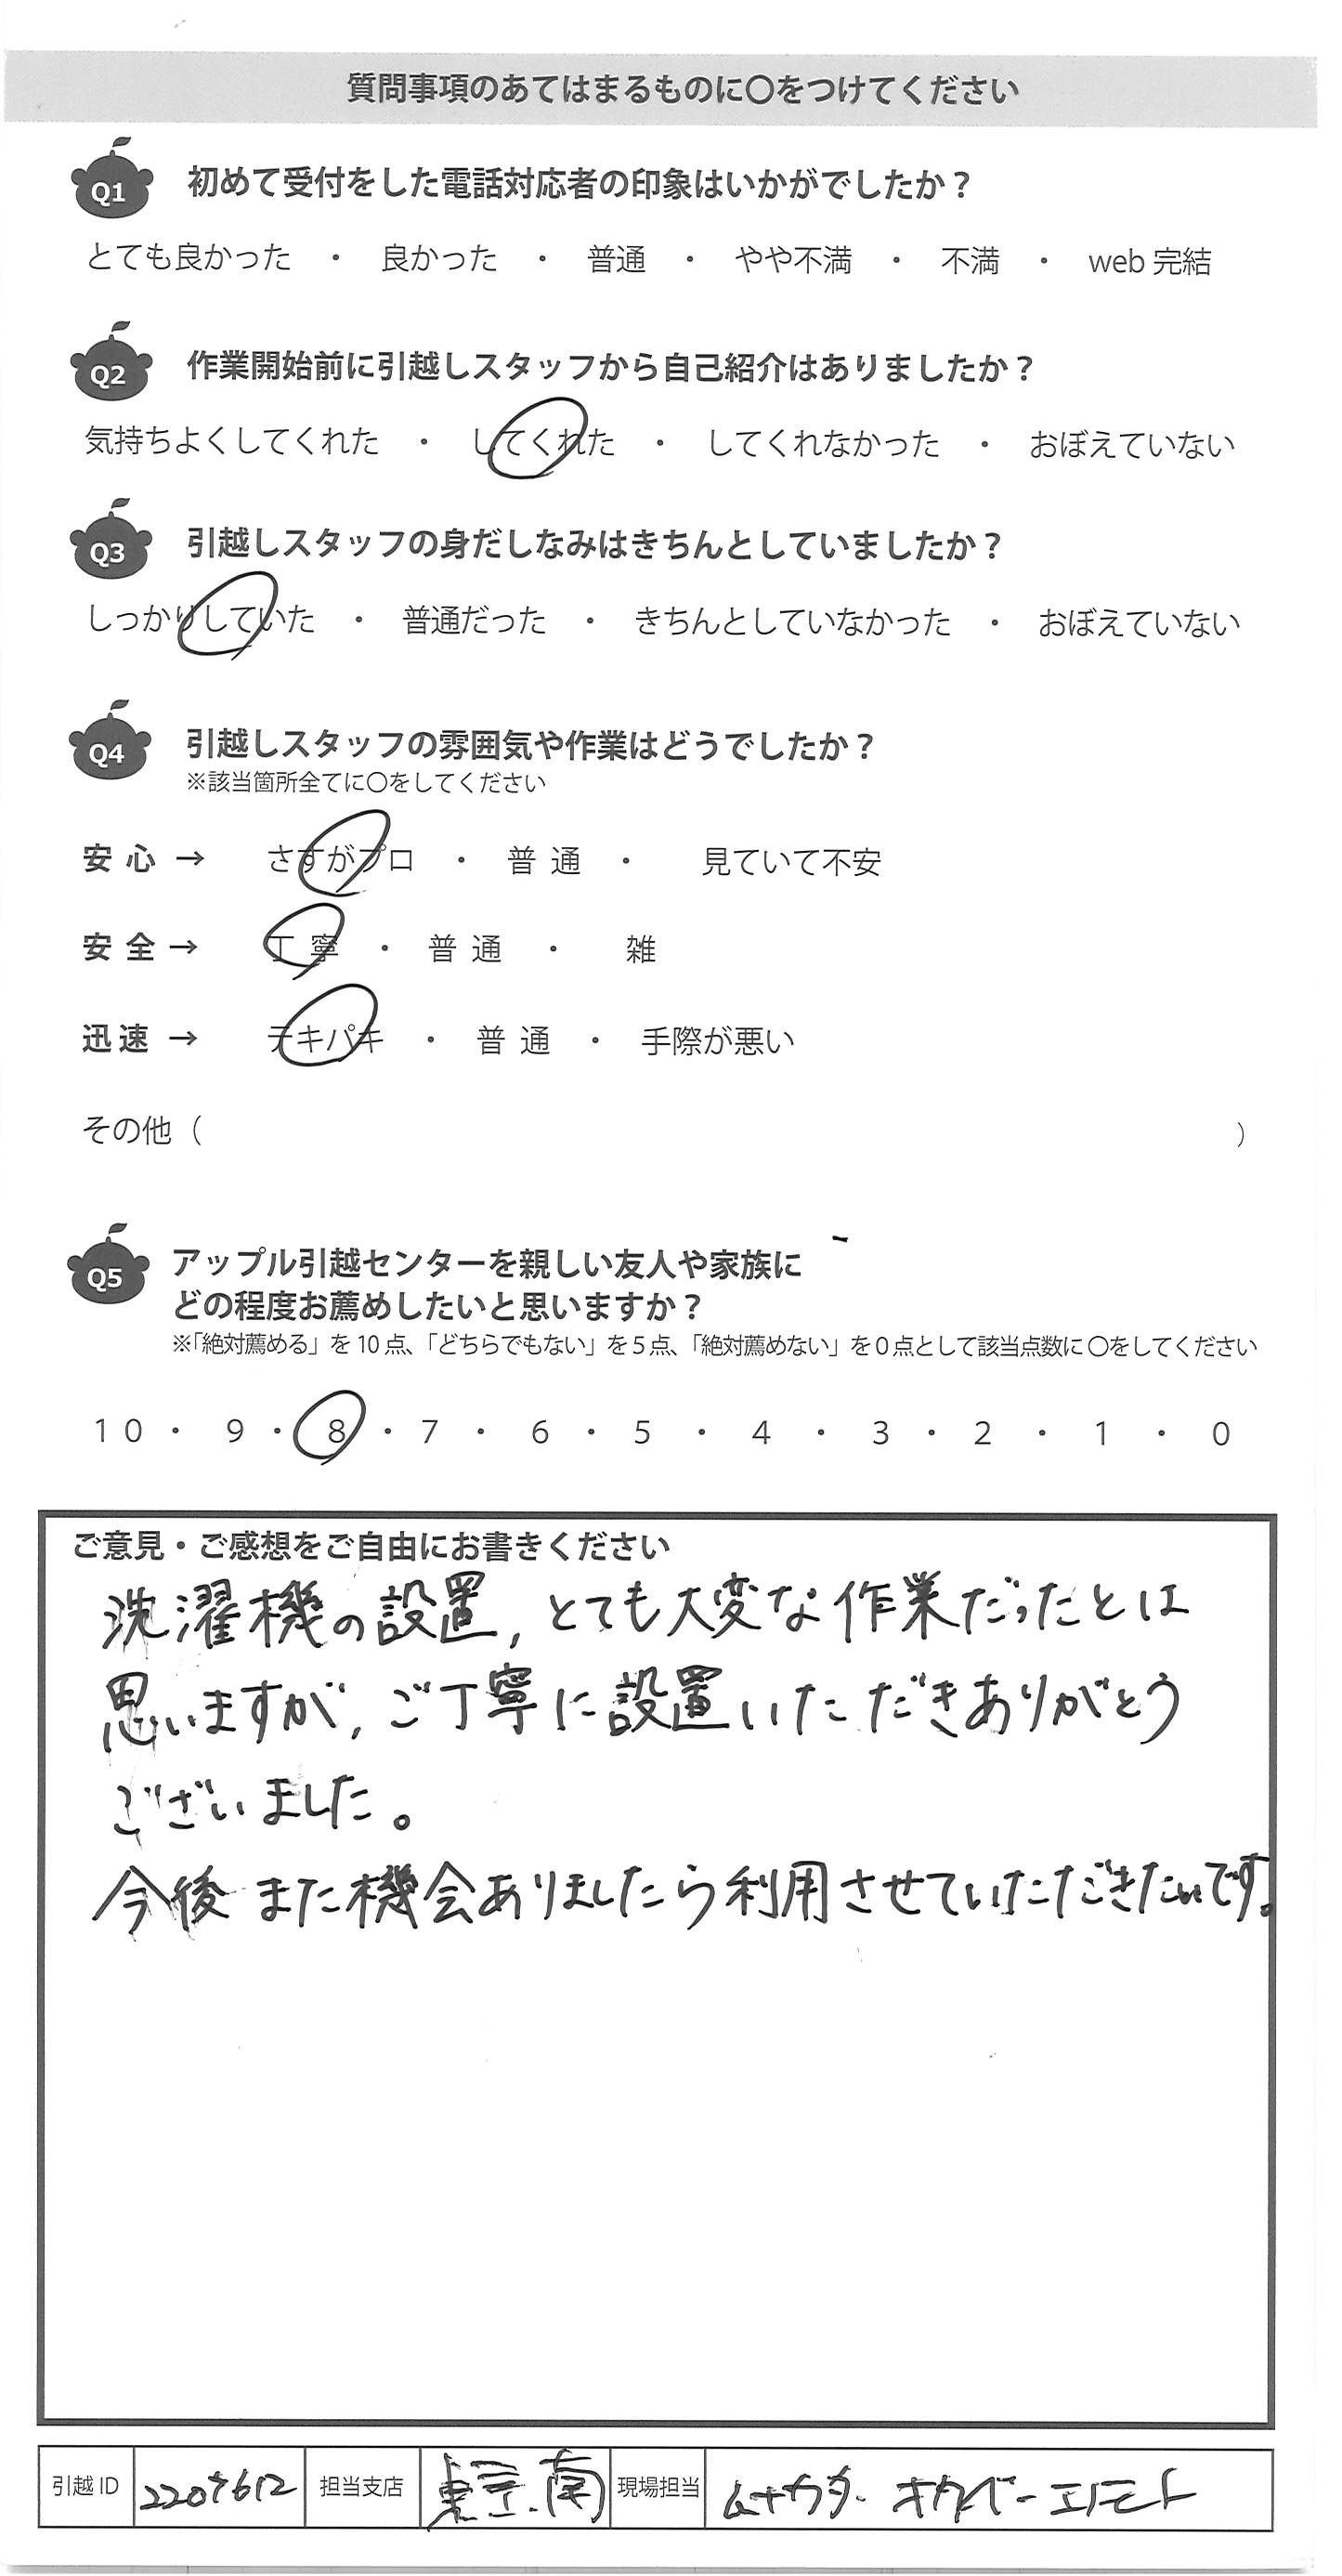 質問事項のあてはまるものに〇をつけてください
Q1 初めて受付をした電話対応者の印象はいかがでしたか？
とても良かった ・ 良かった ・ 普通 ・ やや不満 ・ 不満 ・ web 完結
Q2 作業開始前に引越しスタッフから自己紹介はありましたか？
気持ちよくしてくれた ・ してくれた ・ してくれなかった ・ おぼえていない
Q3 引越しスタッフの身だしなみはきちんとしていましたか？
しっかりしていた ・ 普通だった ・ きちんとしていなかった ・ おぼえていない
Q4 引越しスタッフの雰囲気や作業はどうでしたか？
※該当箇所全てに〇をしてください
安心 → さすがプロ ・ 普通 ・ 見ていて不安
安全 → 丁寧 ・ 普通 ・ 雑
迅速 → テキパキ ・ 普通 ・ 手際が悪い
その他（ ）
Q5 アップル引越センターを親しい友人や家族に
どの程度お薦めしたいと思いますか？
※「絶対薦める」を10点、「どちらでもない」を5点、「絶対薦めない」を0点として該当点数に〇をしてください
10 ・ 9 ・ 8 ・ 7 ・ 6 ・ 5 ・ 4 ・ 3 ・ 2 ・ 1 ・ 0
ご意見・ご感想をご自由にお書きください
洗濯機の設置, とても大変な作業だったとは
思いますが, ご丁寧に設置いただきありがとう
ございました。
今後また機会ありましたら利用させていただきたいです。
引越ID 担当支店 東京南 現場担当 エノモト